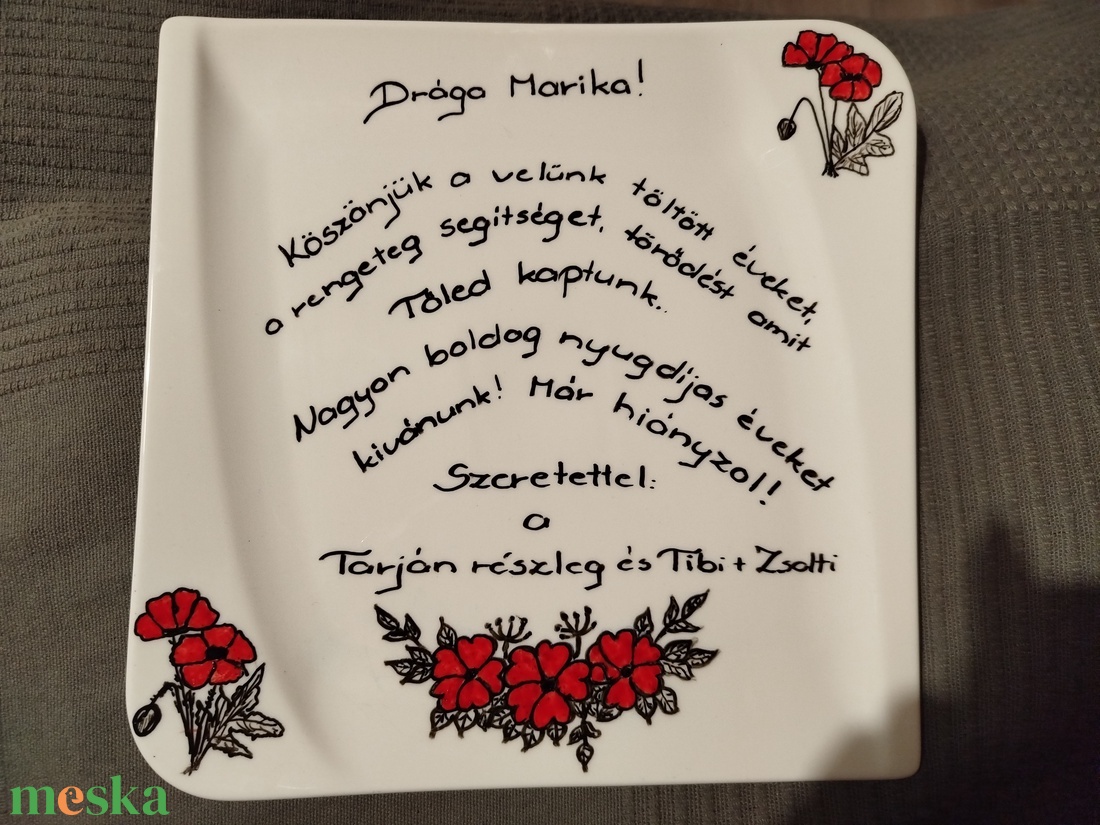 Drága Marika!
Köszönjük a velünk töltött éveket,
a rengeteg segítséget, törődést amit
Tőled kaptunk..
Nagyon boldog nyugdíjas éveket
kívánunk! Már hiányzol!
Szeretettel:
a
Tarján részleg és Tibi + Zsolti
meska